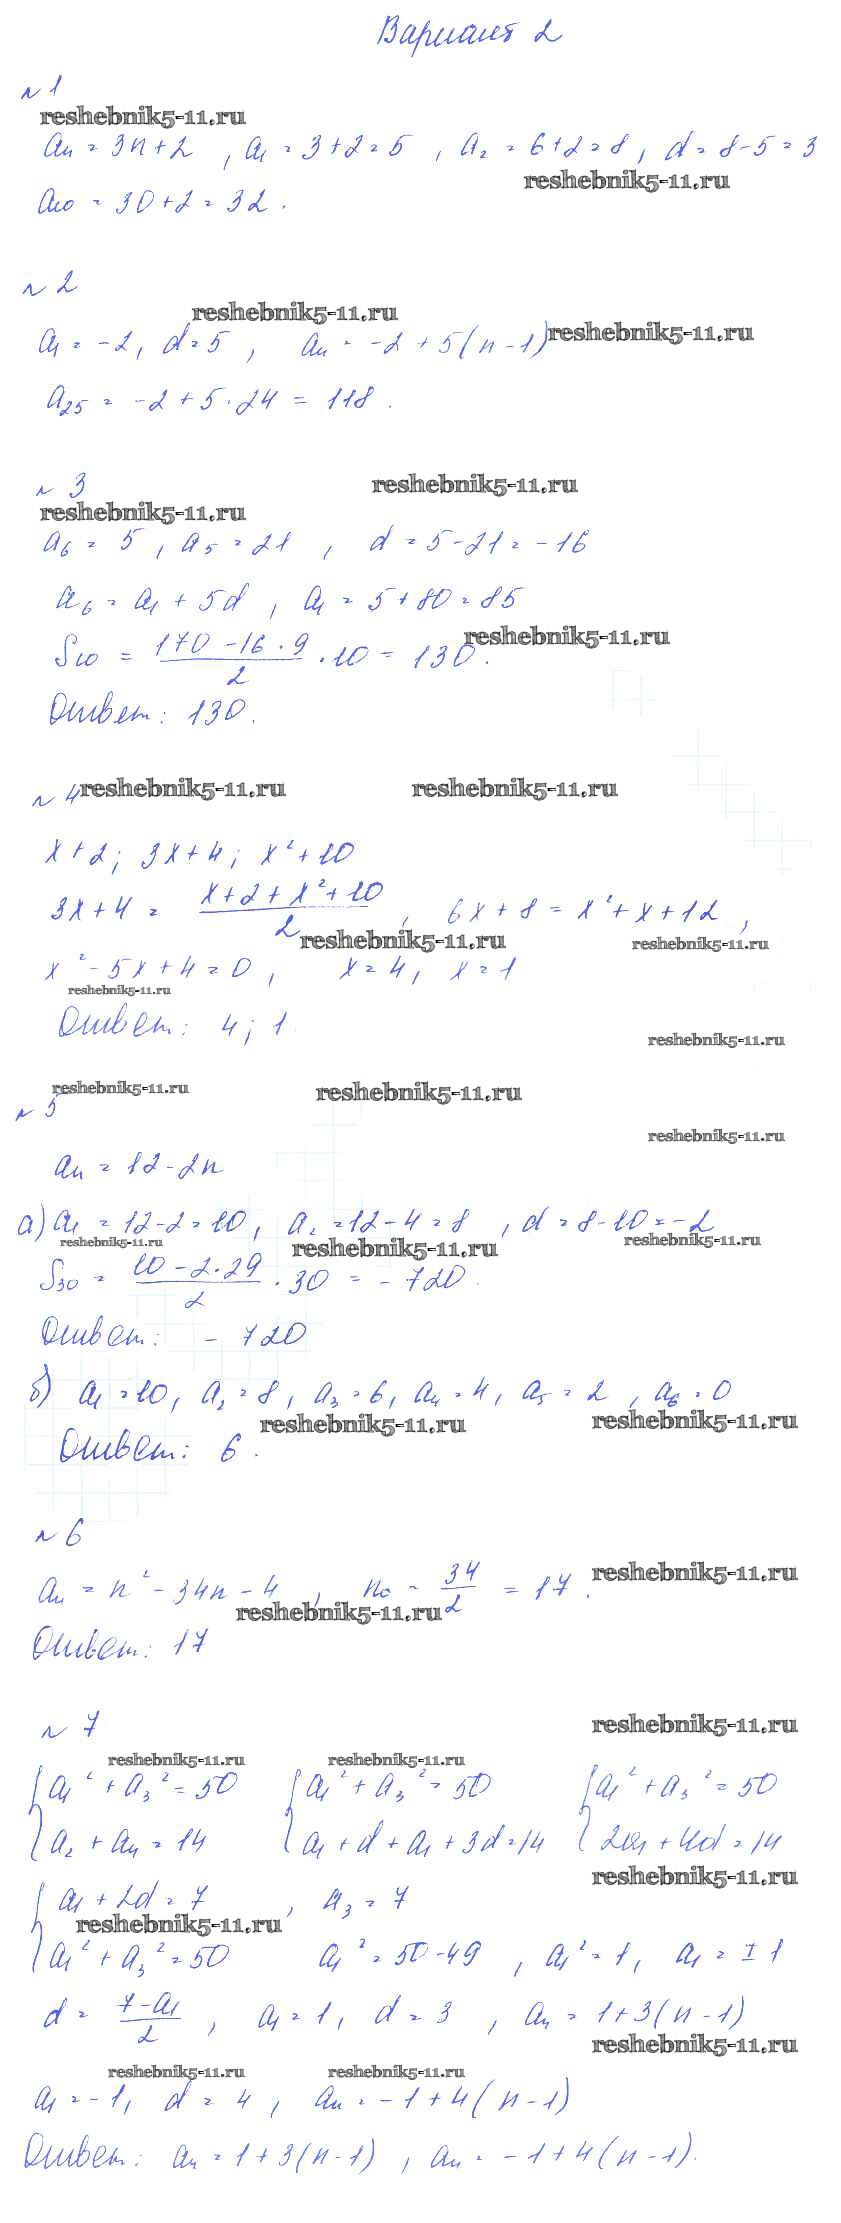 Вариант 2
№ 1
reshebnik5-11.ru
aₙ = 3n+2 , a₁ = 3+2=5 , a₂ = 6+2=8, d = 8-5=3
reshebnik5-11.ru
a₁₀ = 30+2=32.
№ 2
reshebnik5-11.ru
reshebnik5-11.ru
a₁ = -2, d=5 , aₙ = -2+5(n-1)
a₂₅ = -2+5·24 = 118.
№ 3 reshebnik5-11.ru
reshebnik5-11.ru
a₆ = 5 , a₅ = 21 , d = 5-21 = -16
a₆ = a₁ + 5d , a₁ = 5+80=85
S₁₀ = (170-16·9)/2 ·10 = 130. reshebnik5-11.ru
Ответ: 130.
№ 4 reshebnik5-11.ru reshebnik5-11.ru
x+2; 3x+4; x²+10
3x+4 = (x+2+x²+10)/2 , 6x+8 = x²+x+12 ,
reshebnik5-11.ru reshebnik5-11.ru
x²-5x+4=0 , x=4, x=1
reshebnik5-11.ru
Ответ: 4; 1
reshebnik5-11.ru
reshebnik5-11.ru reshebnik5-11.ru
№ 5
reshebnik5-11.ru
aₙ = 12-2n
а) a₁ = 12-2=10, a₂ =12-4=8 , d=8-10=-2
reshebnik5-11.ru reshebnik5-11.ru reshebnik5-11.ru
S₃₀ = (10-2·29)/2 ·30 = -720.
Ответ: -720
б) a₁=10, a₂=8, a₃=6, a₄=4, a₅=2 , a₆=0
reshebnik5-11.ru reshebnik5-11.ru
Ответ: 6.
№ 6
aₙ = n²-34n-4 , n₀ = 34/2 = 17. reshebnik5-11.ru
reshebnik5-11.ru
Ответ: 17
№ 7 reshebnik5-11.ru
reshebnik5-11.ru reshebnik5-11.ru
{a₁²+a₃²=50 {a₁²+a₃²=50 {a₁²+a₃²=50
{a₂+a₄=14 {a₁+d+a₁+3d=14 {2a₁+4d=14
reshebnik5-11.ru
{a₁+2d=7 , a₃=7
reshebnik5-11.ru
{a₁²+a₃²=50 a₁²=50-49 , a₁²=1, a₁=±1
d = (7-a₁)/2 , a₁=1, d=3 , aₙ=1+3(n-1)
reshebnik5-11.ru
reshebnik5-11.ru reshebnik5-11.ru
a₁=-1, d=4 , aₙ=-1+4(n-1)
Ответ: aₙ=1+3(n-1) , aₙ=-1+4(n-1).